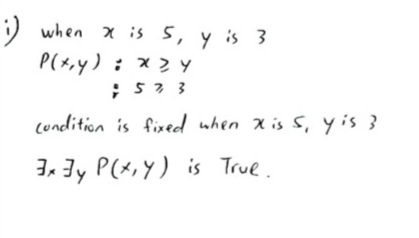 i) when x is 5, y is 3
P(x,y) : x ≥ y
; 5 ≥ 3
condition is fixed when x is 5, y is 3
∃x ∃y P(x,y) is True.